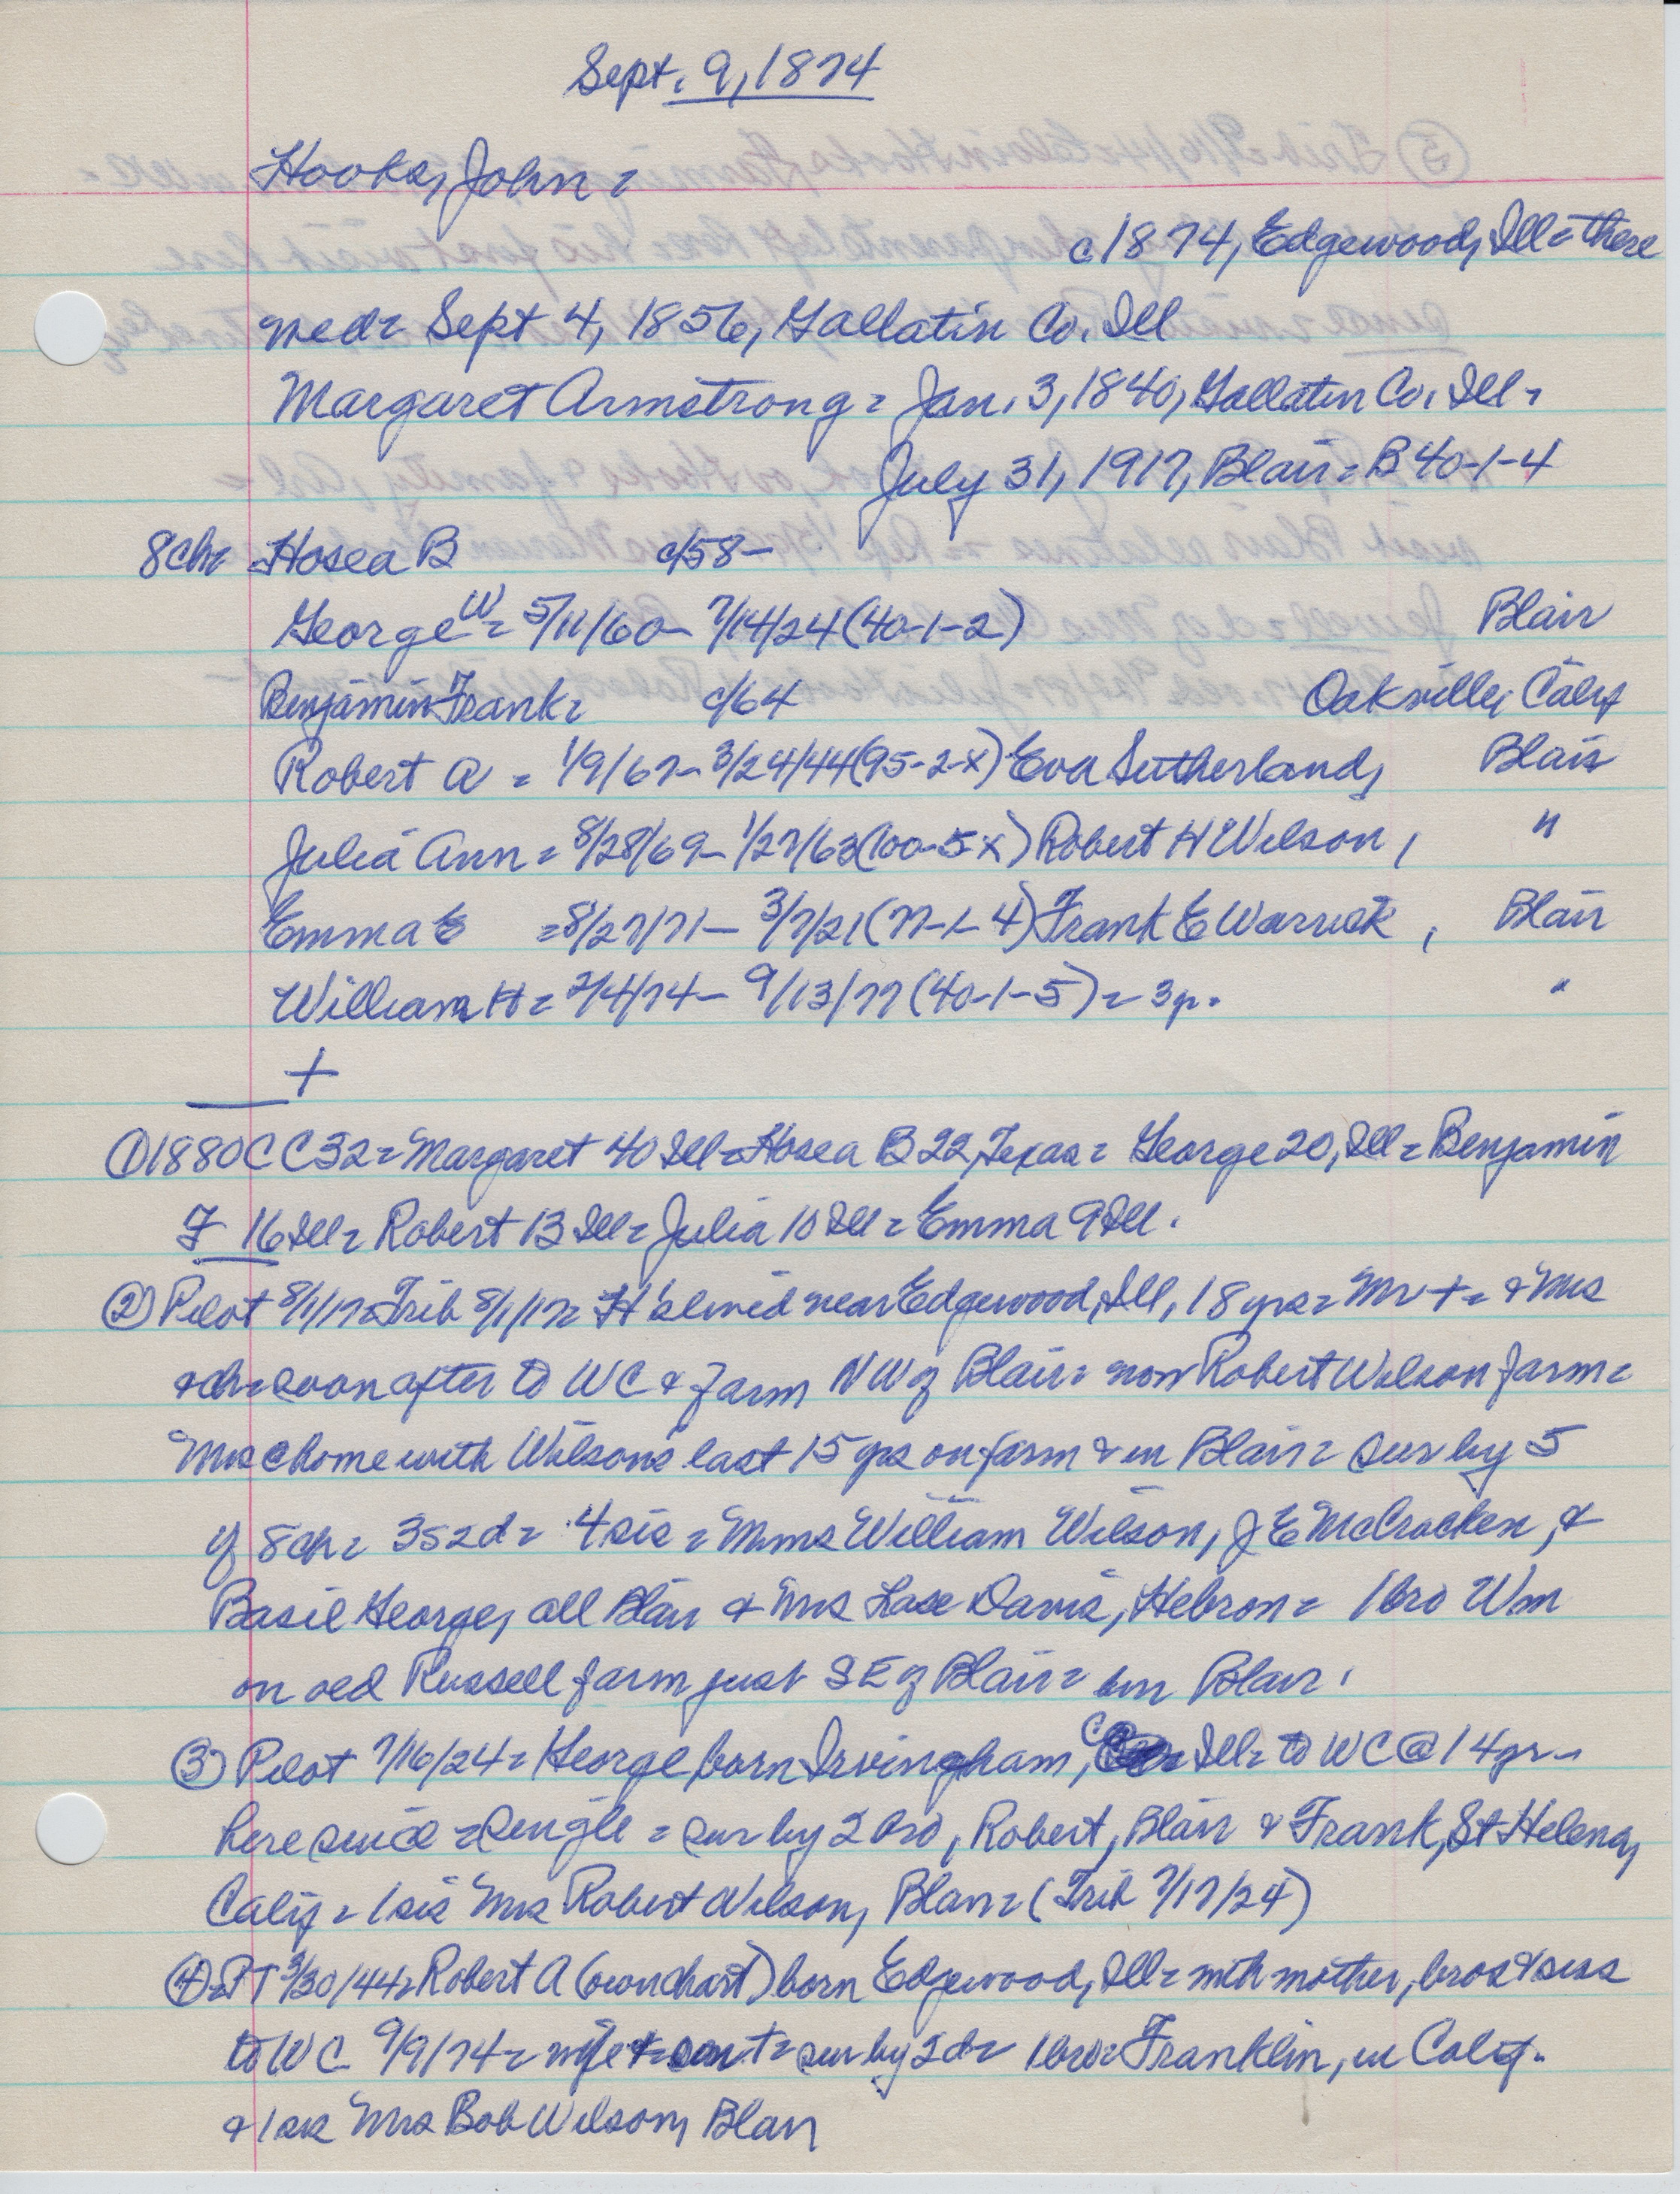 Sept. 9, 1874
Hooks, John =
c1874, Edgewood, Ill = there
med = Sept 4, 1856, Gallatin Co. Ill
Margaret Armstrong = Jan. 3, 1840, Gallatin Co. Ill -
July 31, 1917, Blair = B 40-1-4
8ch= Hosea B c/58-
George W = 5/11/60- 7/14/24 (40-1-2) Blair
Benjamin Frank = c/64 Oakville, Calif
Robert A = 1/9/67- 3/24/44 (95-2-X) Eva Sutherland, Blair
Julia Ann = 8/28/69- 1/27/63 (100-5 X) Robert H Wilson, "
Emma E = 8/27/71- 3/7/21 (77-1-4) Frank E Warrick, Blair
William H = 2/4/74- 9/13/77 (40-1-5) = 3yr. "
+
① 1880C C32 = Margaret 40 Ill = Hosea B 22, Texas = George 20, Ill = Benjamin
F 16 Ill = Robert 13 Ill = Julia 10 Ill = Emma 9 Ill.
② Pilot 8/1/17 = Trib 8/1/17 = H's lived near Edgewood, Ill, 18 yrs = Mr + = & Mrs
& ch = soon after to WC & farm NW of Blair = now Robert Wilson farm =
Mrs home with Wilsons last 15 yrs on farm & in Blair = sur by 5
of 8ch = 3s 2d = 4 sis = Mmes William Wilson, J E McCracken, &
Basil George, all Blair & Mrs Lase Davis, Hebron = 1 bro Wm
on old Russell farm just SE of Blair = bur Blair.
③ Pilot 7/16/24 = George born Irvingham, Co Ill = to WC @ 14yr -
here since = single = sur by 2 bro, Robert, Blair & Frank, St Helena,
Calif = 1 sis Mrs Robert Wilson, Blair = (Trib 7/17/24)
④ = PT 3/30/44 = Robert A (own chart) born Edgewood, Ill = with mother, bros & siss
to WC 9/9/74 = wife + = son + = sur by 2d = 1 bro = Franklin, in Calif.
& 1 sis Mrs Bob Wilson, Blair